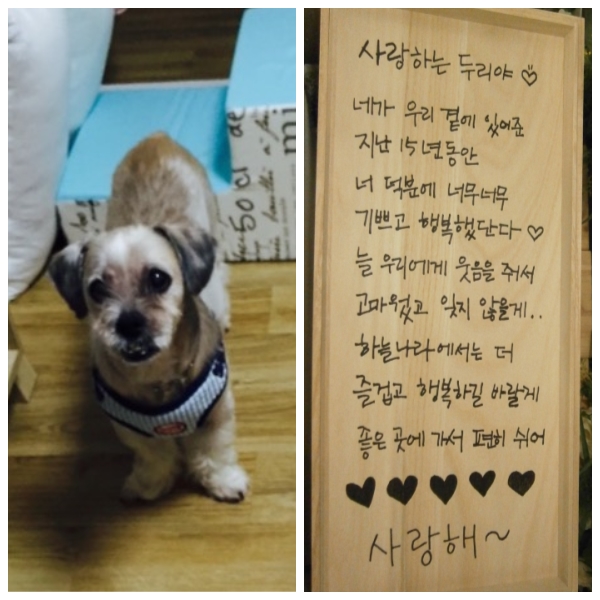 사랑하는 두리야♡
네가 우리 곁에 있어준
지난 15년동안
너 덕분에 너무너무
기쁘고 행복했단다♡
늘 우리에게 웃음을 줘서
고마웠고 잊지 않을게..
하늘나라에서는 더
즐겁고 행복하길 바랄게
좋은 곳에 가서 편히 쉬어
♥♥♥♥♥
사랑해~
50cl de
mi